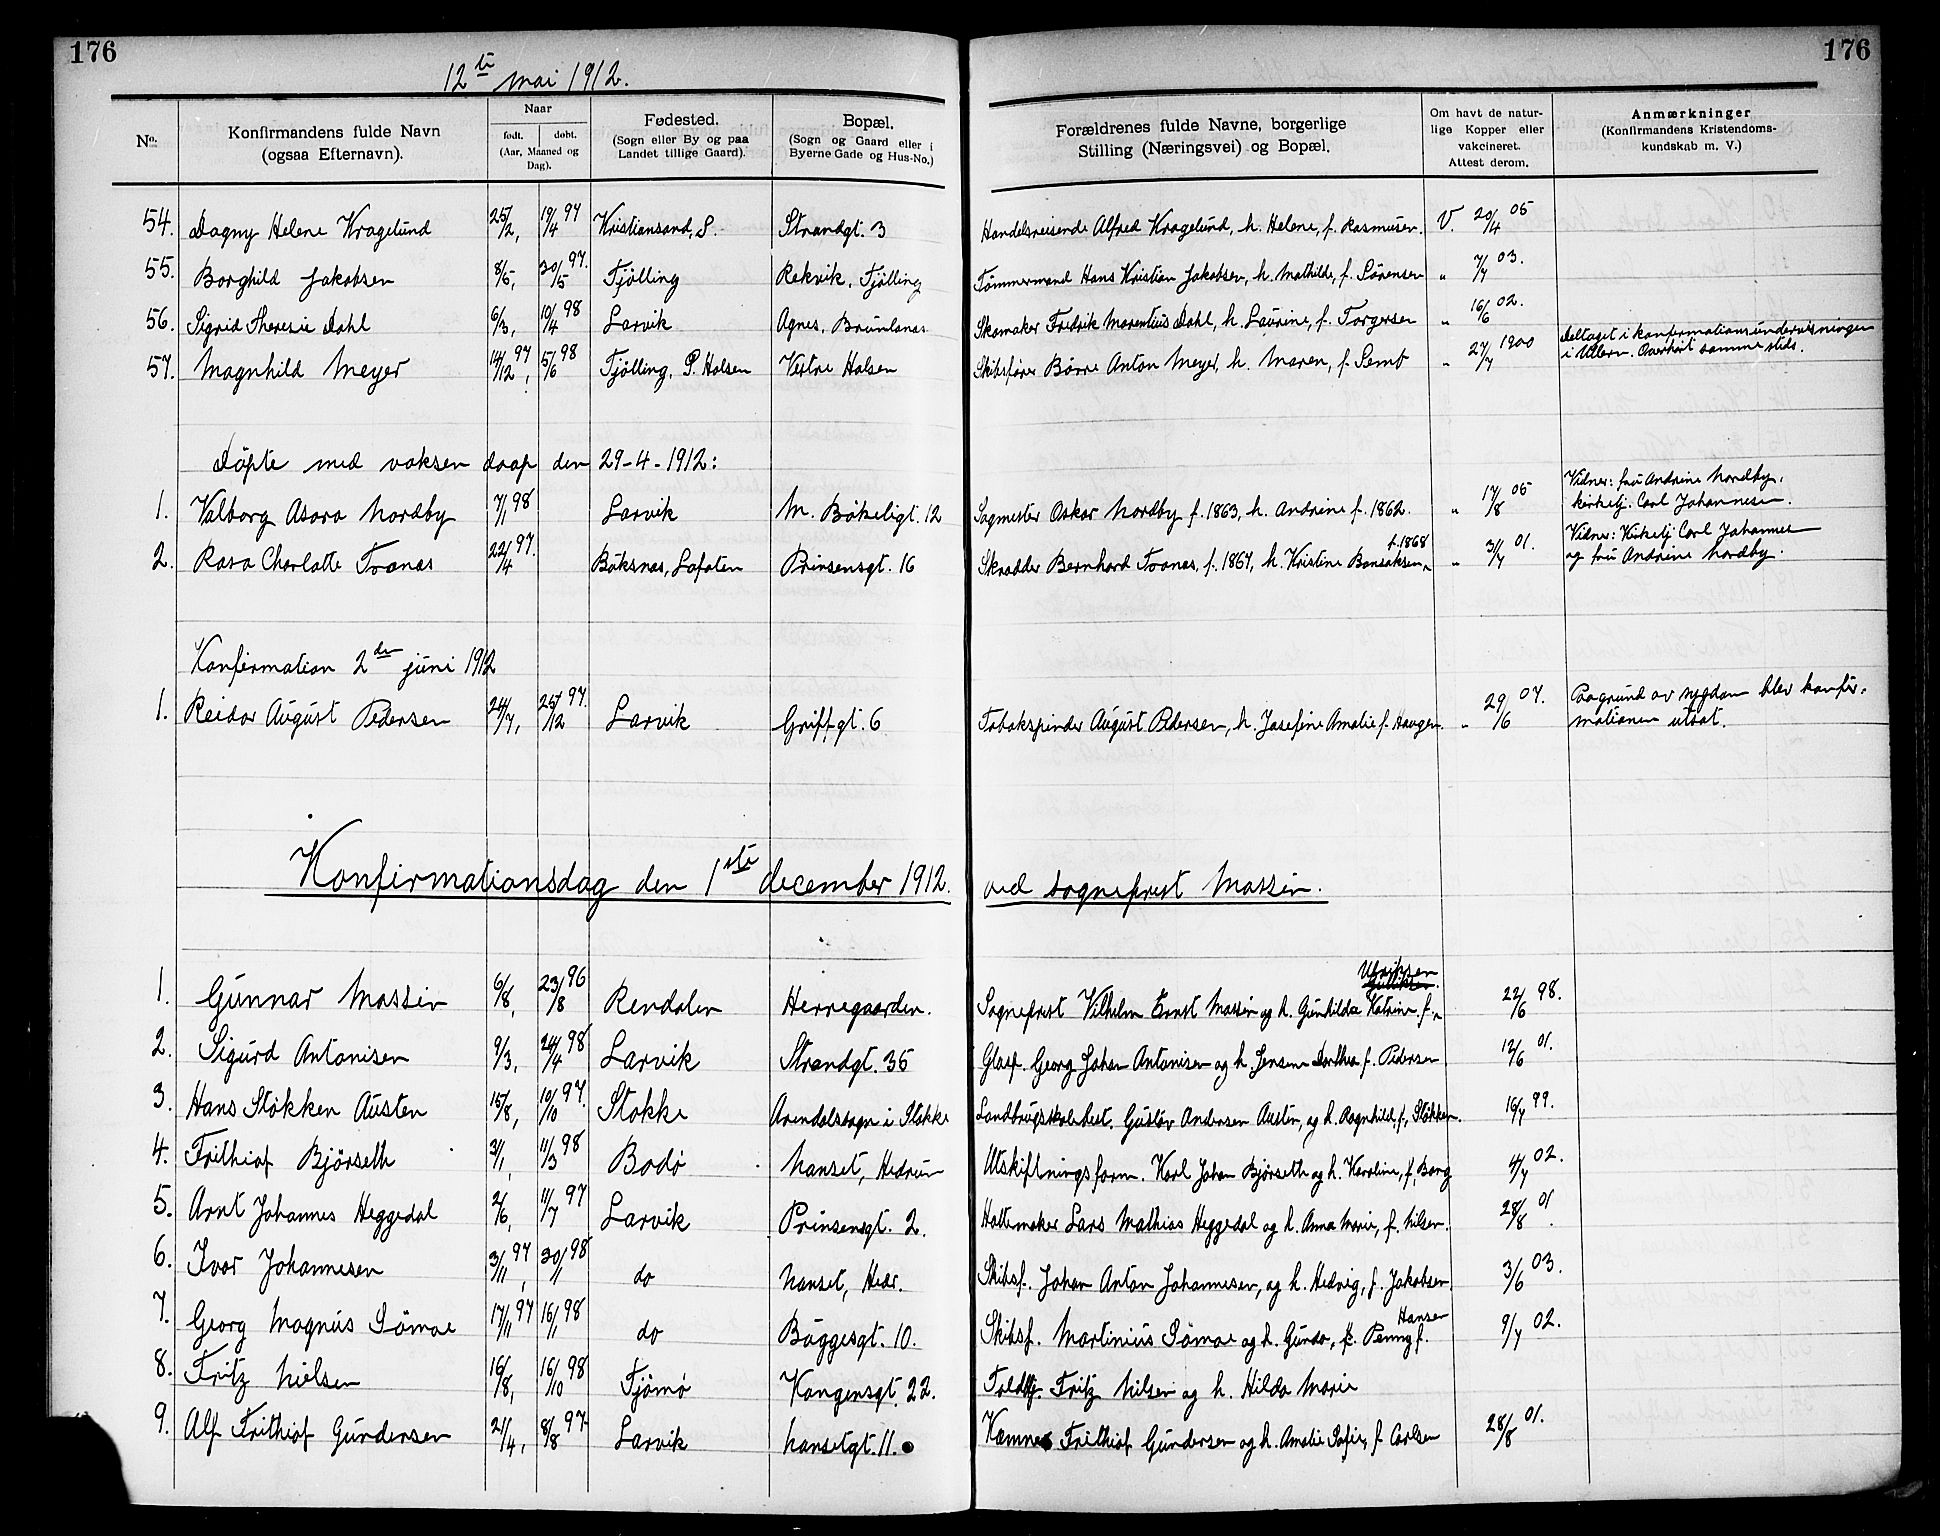 176
176
12te mai 1912.
No. Konfirmandens fulde Navn (ogsaa Efternavn). Naar født. døbt. (Aar, Maaned og Dag). Fødested. (Sogn eller By og paa Landet tillige Gaard). Bopæl. (Sogn og Gaard eller i Byerne Gade og Hus-No.) Forældrenes fulde Navne, borgerlige Stilling (Næringsvei) og Bopæl. Om havt de naturlige Kopper eller vakcineret. Attest derom. Anmærkninger (Konfirmandens Kristendomskundskab m. V.)
54. Dagny Helene Kragelund 25/2, 19/4 97 Kristiansand, S. Strandgt. 3 Handelsreisende Alfred Kragelund, h. Helene, f. Rasmusen. V. 20/4 05
55. Borghild Jakobsen 8/5, 30/5 97. Tjölling Rekvik, Tjölling Tömmermand Hans Kristian Jakobsen, h. Mathilde, f. Sörensen " 7/7 03.
56. Sigrid Theresie Dahl 6/3, 10/4 98 Larvik Agnes, Brunlanes Skomaker Fredrik Marentius Dahl, h. Laurine, f. Torgersen " 16/6 02.
57. Magnhild Meyer 14/12 97, 5/6 98 Tjölling, P. Halsen Vestre Halsen Skibsförer Börre Anton Meyer, h. Maren, f. Semb " 27/7 1900 Deltaget i konfirmationsundervisningen i Ullern. Overhört samme steds.
Döpte med voksen daap den 29-4-1912:
1. Valborg Asora Nordby 7/1 98 Larvik N. Bökeligt. 12 Sagmester Oskar Nordby f. 1863, h. Andrine f. 1862. " 17/8 05 Vidner: fru Andrine Nordby, kirketj. Carl Johannesen.
2. Rosa Charlotte Tranas 22/4 97. Böksnes, Lofoten Prinsensgt. 16 Skradder Bernhard Tranas, f. 1867, h. Kristine Bonsaksen, f. 1868 " 3/7 01. Vidner: Kirketj Carl Johannes og fru Andrine Nordby.
Konfirmation 2den juni 1912
1. Reidar August Pedersen 24/7, 25/12 97. Larvik Griffgt. 6 Tobakspinder August Pedersen, h. Josefine Amalie f. Haugen. " 29/6 07. Paagrund av sygdom blev konfirmationen utsat.
Konfirmationsdag den 1ste december 1912. ved sogneprest Massin.
1. Gunnar Massin 6/8, 23/8 96 Rendalen Herregaarden. Sogneprest Vilhelm Ernst Massin og h. Gunhilda Katrine f. Ulriksen 22/6 98.
2. Sigurd Antonisen 9/3, 24/4 98 Larvik Strandgt. 35 Glasf. Georg Johan Antonisen og h. Jensine Dorthea f. Pedersen 12/6 01.
3. Hans Stökken Austen 15/8, 10/10 97. Stokke Arendalssogn i Stokke Landbrugsskolebest. Gustav Andersen Austen, og h. Ragnhild, f. Stökken. 16/7 99.
4. Frithiof Björseth 3/1, 11/3 98 Bodö Nanset, Hedrum Utskiftningsform. Karl Johan Björseth og h. Karoline, f. Borg 4/7 02.
5. Arnt Johannes Heggedal 2/6, 11/7 97 Larvik Prinsensgt. 2. Hattemaker Lars Mathias Heggedal og h. Anna Marie, f. Nilsen. 28/8 01.
6. Ivar Johannesen 3/11 97, 30/1 98 do Nanset, Hedr. Skibsf. Johan Anton Johannesen, og h. Hedvig, f. Jakobsen 3/6 03.
7. Georg Magnus Sömoe 17/11 97 16/1 98 do Buggesgt. 10. Skibsf. Martinius Sömoe og h. Gunda, Penny f. Hansen 9/7 02.
8. Fritz Nielsen 16/8, 16/10 98 Tjömö Kongensgt. 22. Toldbtj. Fritz Nilsen og h. Hilda Marie
9. Alf Frithiof Gundersen 21/4, 8/8 97. Larvik Nansetgt. 11. Kæmner Frithiof Gundersen og h. Amalie Sofie, f. Carlsen 28/8 01.